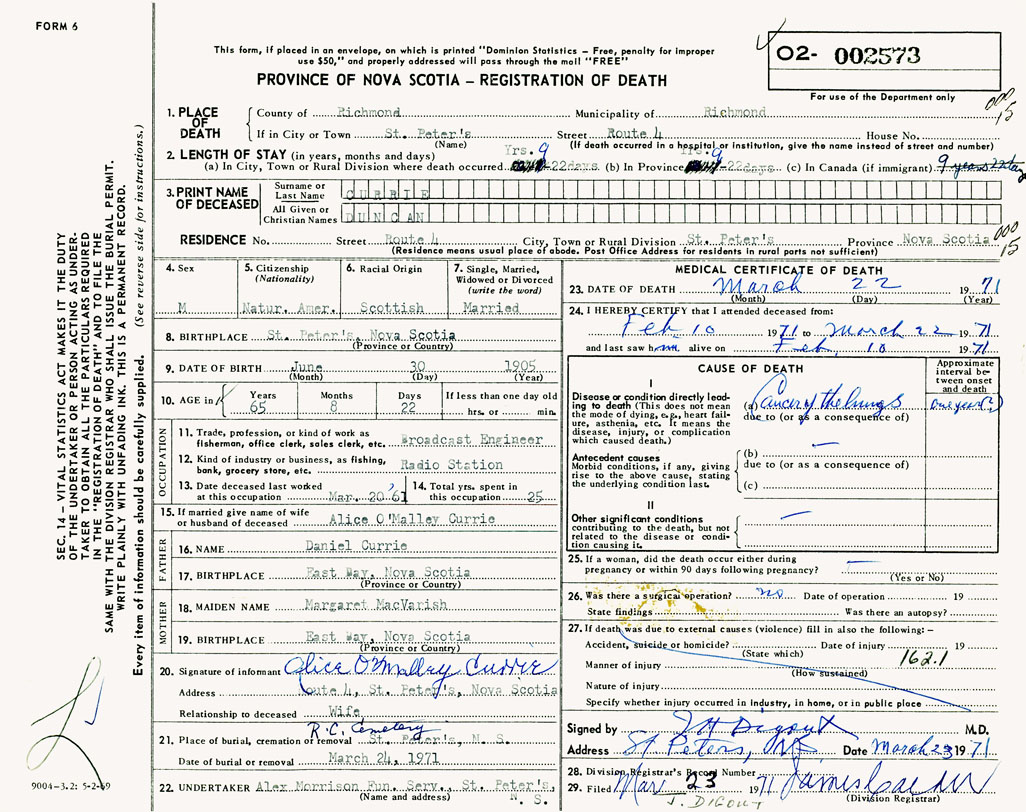 FORM 6
This form, if placed in an envelope, on which is printed "Dominion Statistics – Free, penalty for improper
use $50," and properly addressed will pass through the mail "FREE"
PROVINCE OF NOVA SCOTIA – REGISTRATION OF DEATH
O2- 002573
For use of the Department only
000
15
SEC. 14 – VITAL STATISTICS ACT MAKES IT THE DUTY
OF THE UNDERTAKER OR PERSON ACTING AS UNDER-
TAKER TO OBTAIN ALL THE PARTICULARS REQUIRED
IN THE "REGISTRATION OF DEATH" AND TO FILE THE
SAME WITH THE DIVISION REGISTRAR WHO SHALL ISSUE THE BURIAL PERMIT.
WRITE PLAINLY WITH UNFADING INK. THIS IS A PERMANENT RECORD.
Every item of information should be carefully supplied. (See reverse side for instructions.)
1. PLACE OF DEATH
County of Richmond Municipality of Richmond
If in City or Town St. Peter's Street Route 4 House No.
(Name) (If death occurred in a hospital or institution, give the name instead of street and number)
2. LENGTH OF STAY (in years, months and days) Yrs. 9 Yrs. 9
(a) In City, Town or Rural Division where death occurred 22days (b) In Province 22days (c) In Canada (if immigrant) 9 years
3. PRINT NAME OF DECEASED
Surname or Last Name CURRIE
All Given or Christian Names DUNCAN
RESIDENCE No. Street Route 4 City, Town or Rural Division St. Peter's Province Nova Scotia
(Residence means usual place of abode. Post Office Address for residents in rural parts not sufficient)
000
15
4. Sex M
5. Citizenship (Nationality) Natur. Amer.
6. Racial Origin Scottish
7. Single, Married, Widowed or Divorced (write the word) Married
8. BIRTHPLACE St. Peter's, Nova Scotia
(Province or Country)
9. DATE OF BIRTH June 30 1905
(Month) (Day) (Year)
10. AGE in Years 65 Months 8 Days 22 If less than one day old hrs. or min.
OCCUPATION
11. Trade, profession, or kind of work as fisherman, office clerk, sales clerk, etc. Broadcast Engineer
12. Kind of industry or business, as fishing, bank, grocery store, etc. Radio Station
13. Date deceased last worked at this occupation Mar. 20 61
14. Total yrs. spent in this occupation 25
15. If married give name of wife or husband of deceased Alice O'Malley Currie
FATHER
16. NAME Daniel Currie
17. BIRTHPLACE East Way, Nova Scotia
(Province or Country)
MOTHER
18. MAIDEN NAME Margaret MacVarish
19. BIRTHPLACE East Way, Nova Scotia
(Province or Country)
20. Signature of informant Alice O'Malley Currie
Address Route 4, St. Peter's, Nova Scotia
Relationship to deceased Wife
R.C. Cemetery
21. Place of burial, cremation or removal St. Peter's, N. S.
Date of burial or removal March 24, 1971
22. UNDERTAKER Alex Morrison Fun. Serv. St. Peter's,
(Name and address) N. S.
9004-3.2: 5-2-69
MEDICAL CERTIFICATE OF DEATH
23. DATE OF DEATH March 22 1971
(Month) (Day) (Year)
24. I HEREBY CERTIFY that I attended deceased from:
Feb 10 1971 to March 22 1971
and last saw him alive on Feb. 10 1971
CAUSE OF DEATH
Approximate interval between onset and death
I
Disease or condition directly leading to death (This does not mean the mode of dying, e.g., heart failure, asthenia, etc. It means the disease, injury, or complication which caused death.)
(a) Cancer of the lungs one year (?)
due to (or as a consequence of)
Antecedent causes
Morbid conditions, if any, giving rise to the above cause, stating the underlying condition last.
(b) —
due to (or as a consequence of)
(c)
II
Other significant conditions contributing to the death, but not related to the disease or condition causing it. —
25. If a woman, did the death occur either during
pregnancy or within 90 days following pregnancy? —
(Yes or No)
26. Was there a surgical operation? no Date of operation 19
State findings Was there an autopsy?
27. If death was due to external causes (violence) fill in also the following: –
Accident, suicide or homicide? Date of injury 19
(State which) 162.1
Manner of injury
(How sustained)
Nature of injury
Specify whether injury occurred in industry, in home, or in public place
Signed by J H Digout M.D.
Address St Peters, NS Date March 23 1971
28. Division Registrar's Record Number
29. Filed Mar 23 1971
(Division Registrar)
J. DIGOUT